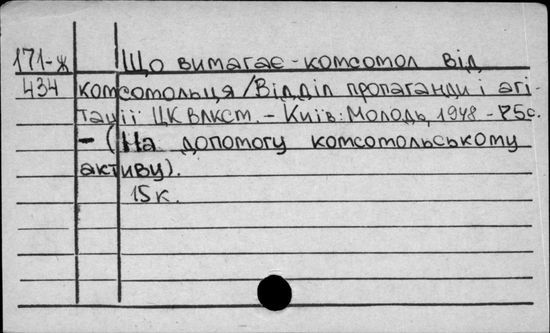 171-ж Що вимагає комсомол від
434 комсомольця / Відділ пропаганди і агі-
тації ЦК ВЛКСМ. – Київ: Молодь, 1948 – 75с.
– (На допомогу комсомольському
активу).
15к.